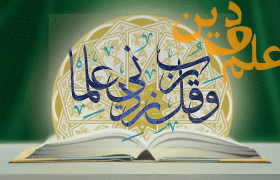 علم و دین
وقل رب زدني علما